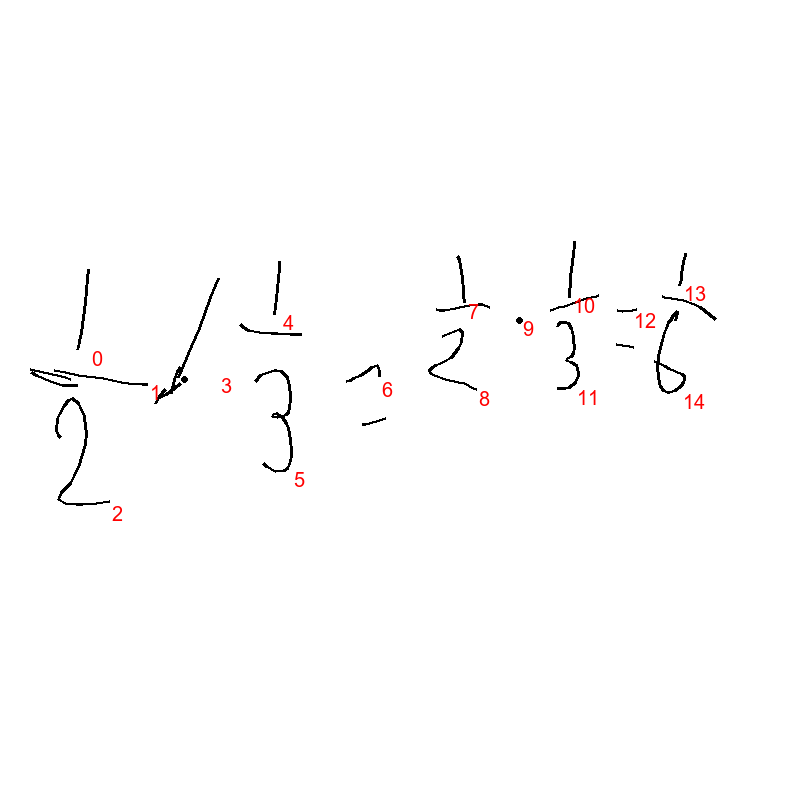 1/2 · 1/3 = 1/2 · 1/3 = 1/6
0 1 2 3 4 5 6 7 8 9 10 11 12 13 14